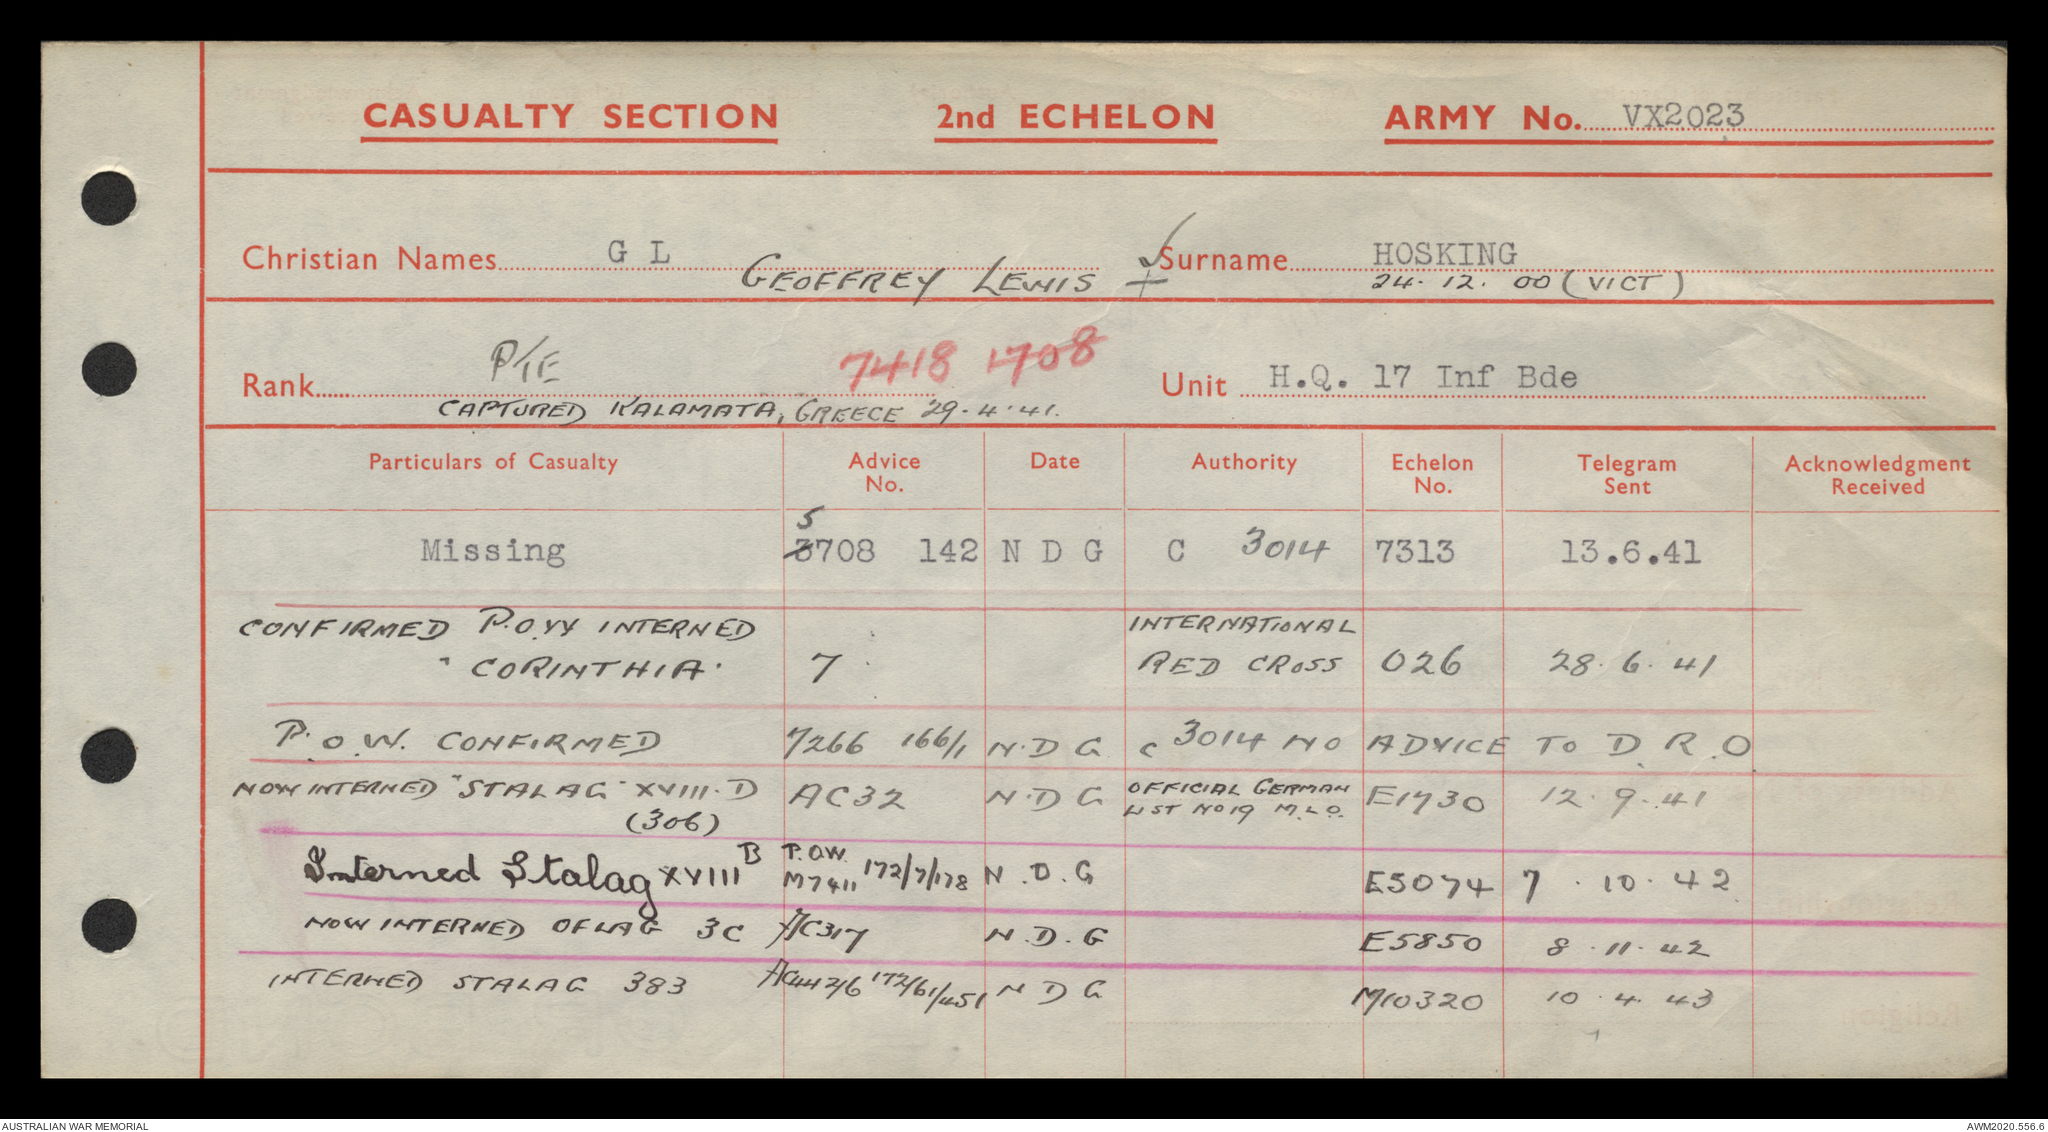 CASUALTY SECTION 2nd ECHELON ARMY No. VX2023
Christian Names G L Surname HOSKING
GEOFFREY LEWIS 24.12.00 (VICT)
Rank P/TE 7418 1708 Unit H.Q. 17 Inf Bde
CAPTURED KALAMATA, GREECE 29.4.41.
Particulars of Casualty Advice No. Date Authority Echelon No. Telegram Sent Acknowledgment Received
5
Missing 3708 142 N D G C 3014 7313 13.6.41
CONFIRMED P.O.W INTERNED INTERNATIONAL
"CORINTHIA" 7 RED CROSS 026 28.6.41
P.O.W. CONFIRMED 7266 166/1 N.D G C 3014 NO ADVICE TO D.R.O
NOW INTERNED "STALAG" XVIII.D AC32 N.D G OFFICIAL GERMAN E1730 12.9.41
(306) LIST NO 19 M.L.O.
Interned Stalag XVIII B P.O.W. M7411 172/7/178 N.D.G E5074 7.10.42
NOW INTERNED OFLAG 3C AC317 N.D.G E5850 8.11.42
INTERNED STALAG 383 AC442/6 172/61/451 N D G M10320 10.4.43
AUSTRALIAN WAR MEMORIAL AWM2020.556.6